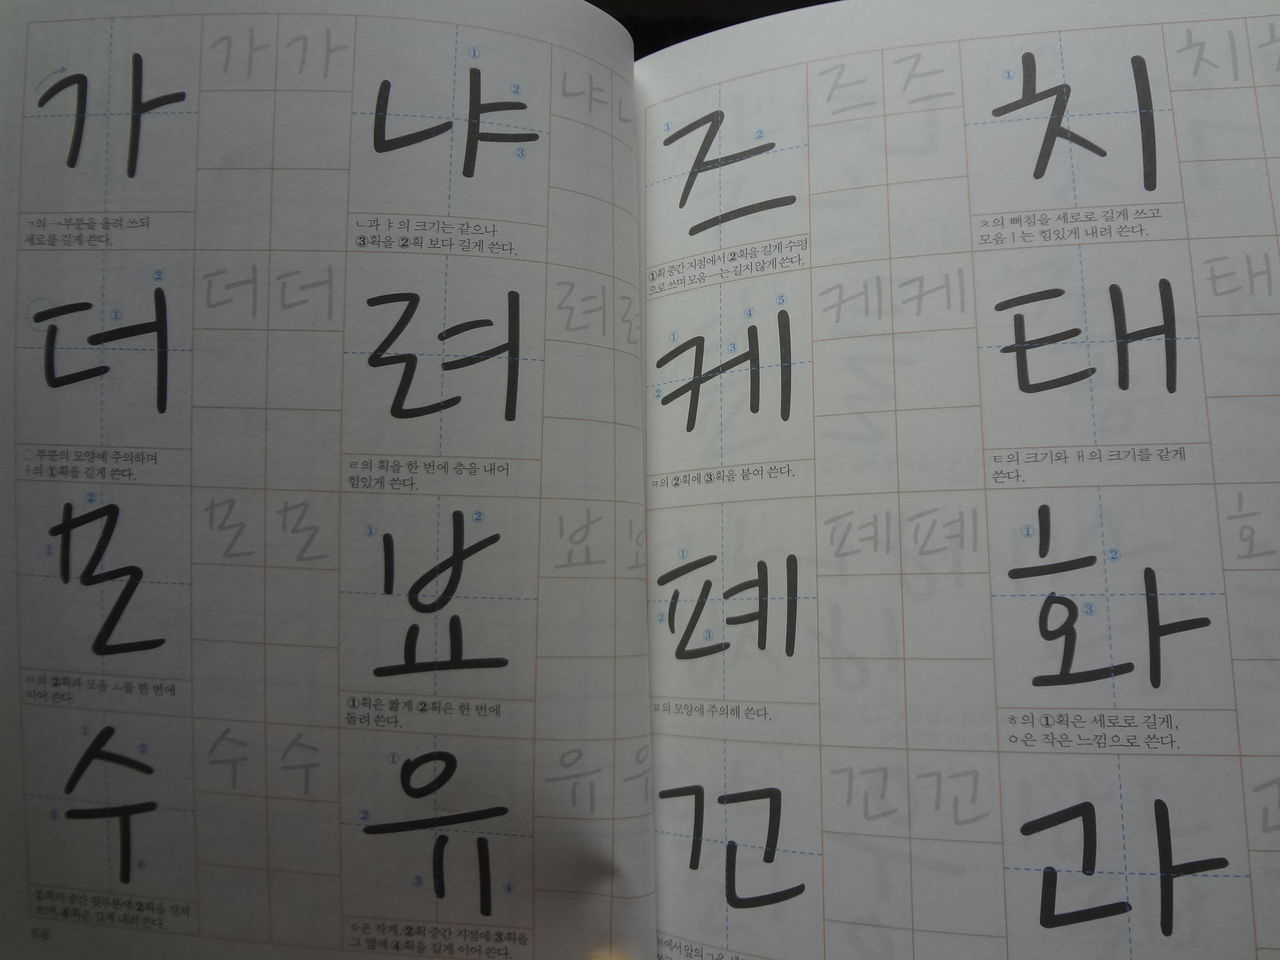 가 가 가
① ② ③
냐 냐
ㄱ의 →부분을 올려 쓰되
세로를 길게 쓴다.
ㄴ과 ㅑ의 크기는 같으나
③획을 ②획 보다 길게 쓴다.
② ①
더 더 더
려 려 려
부분의 모양에 주의하며
ㅓ의 ①획을 길게 쓴다.
ㄹ의 획을 한 번에 층을 내어
힘있게 쓴다.
② ①
모 모 모
① ②
요 요 요
ㅁ의 ②획과 모음 ㅗ를 한 번에
이어 쓴다.
①획은 짧게 ②획은 한 번에
돌려 쓴다.
① ② ③ ④
수 수 수
① ② ③ ④
유 유 유
①획의 중간 윗부분에 ②획을 걸쳐
쓰며 ④획은 길게 내려 쓴다.
ㅇ은 작게, ②획 중간 지점에 ③획을
그 옆에 ④획을 길게 이어 쓴다.
68
① ②
즈 즈 즈
①
치 치
①획 중간 지점에서 ②획을 길게 수평
으로 쓰며 모음 ㅡ는 길지않게 쓴다.
ㅊ의 삐침을 세로로 길게 쓰고
모음 ㅣ는 힘있게 내려 쓴다.
① ② ③ ④ ⑤
케 케 케
태 태
ㅋ의 ②획에 ③획을 붙여 쓴다.
ㅌ의 크기와 ㅐ의 크기를 같게
쓴다.
① ② ③
폐 폐 폐
① ② ③
화
ㅍ의 모양에 주의해 쓴다.
ㅎ의 ①획은 세로로 길게,
ㅇ은 작은 느낌으로 쓴다.
꼬 꼬 꼬
과